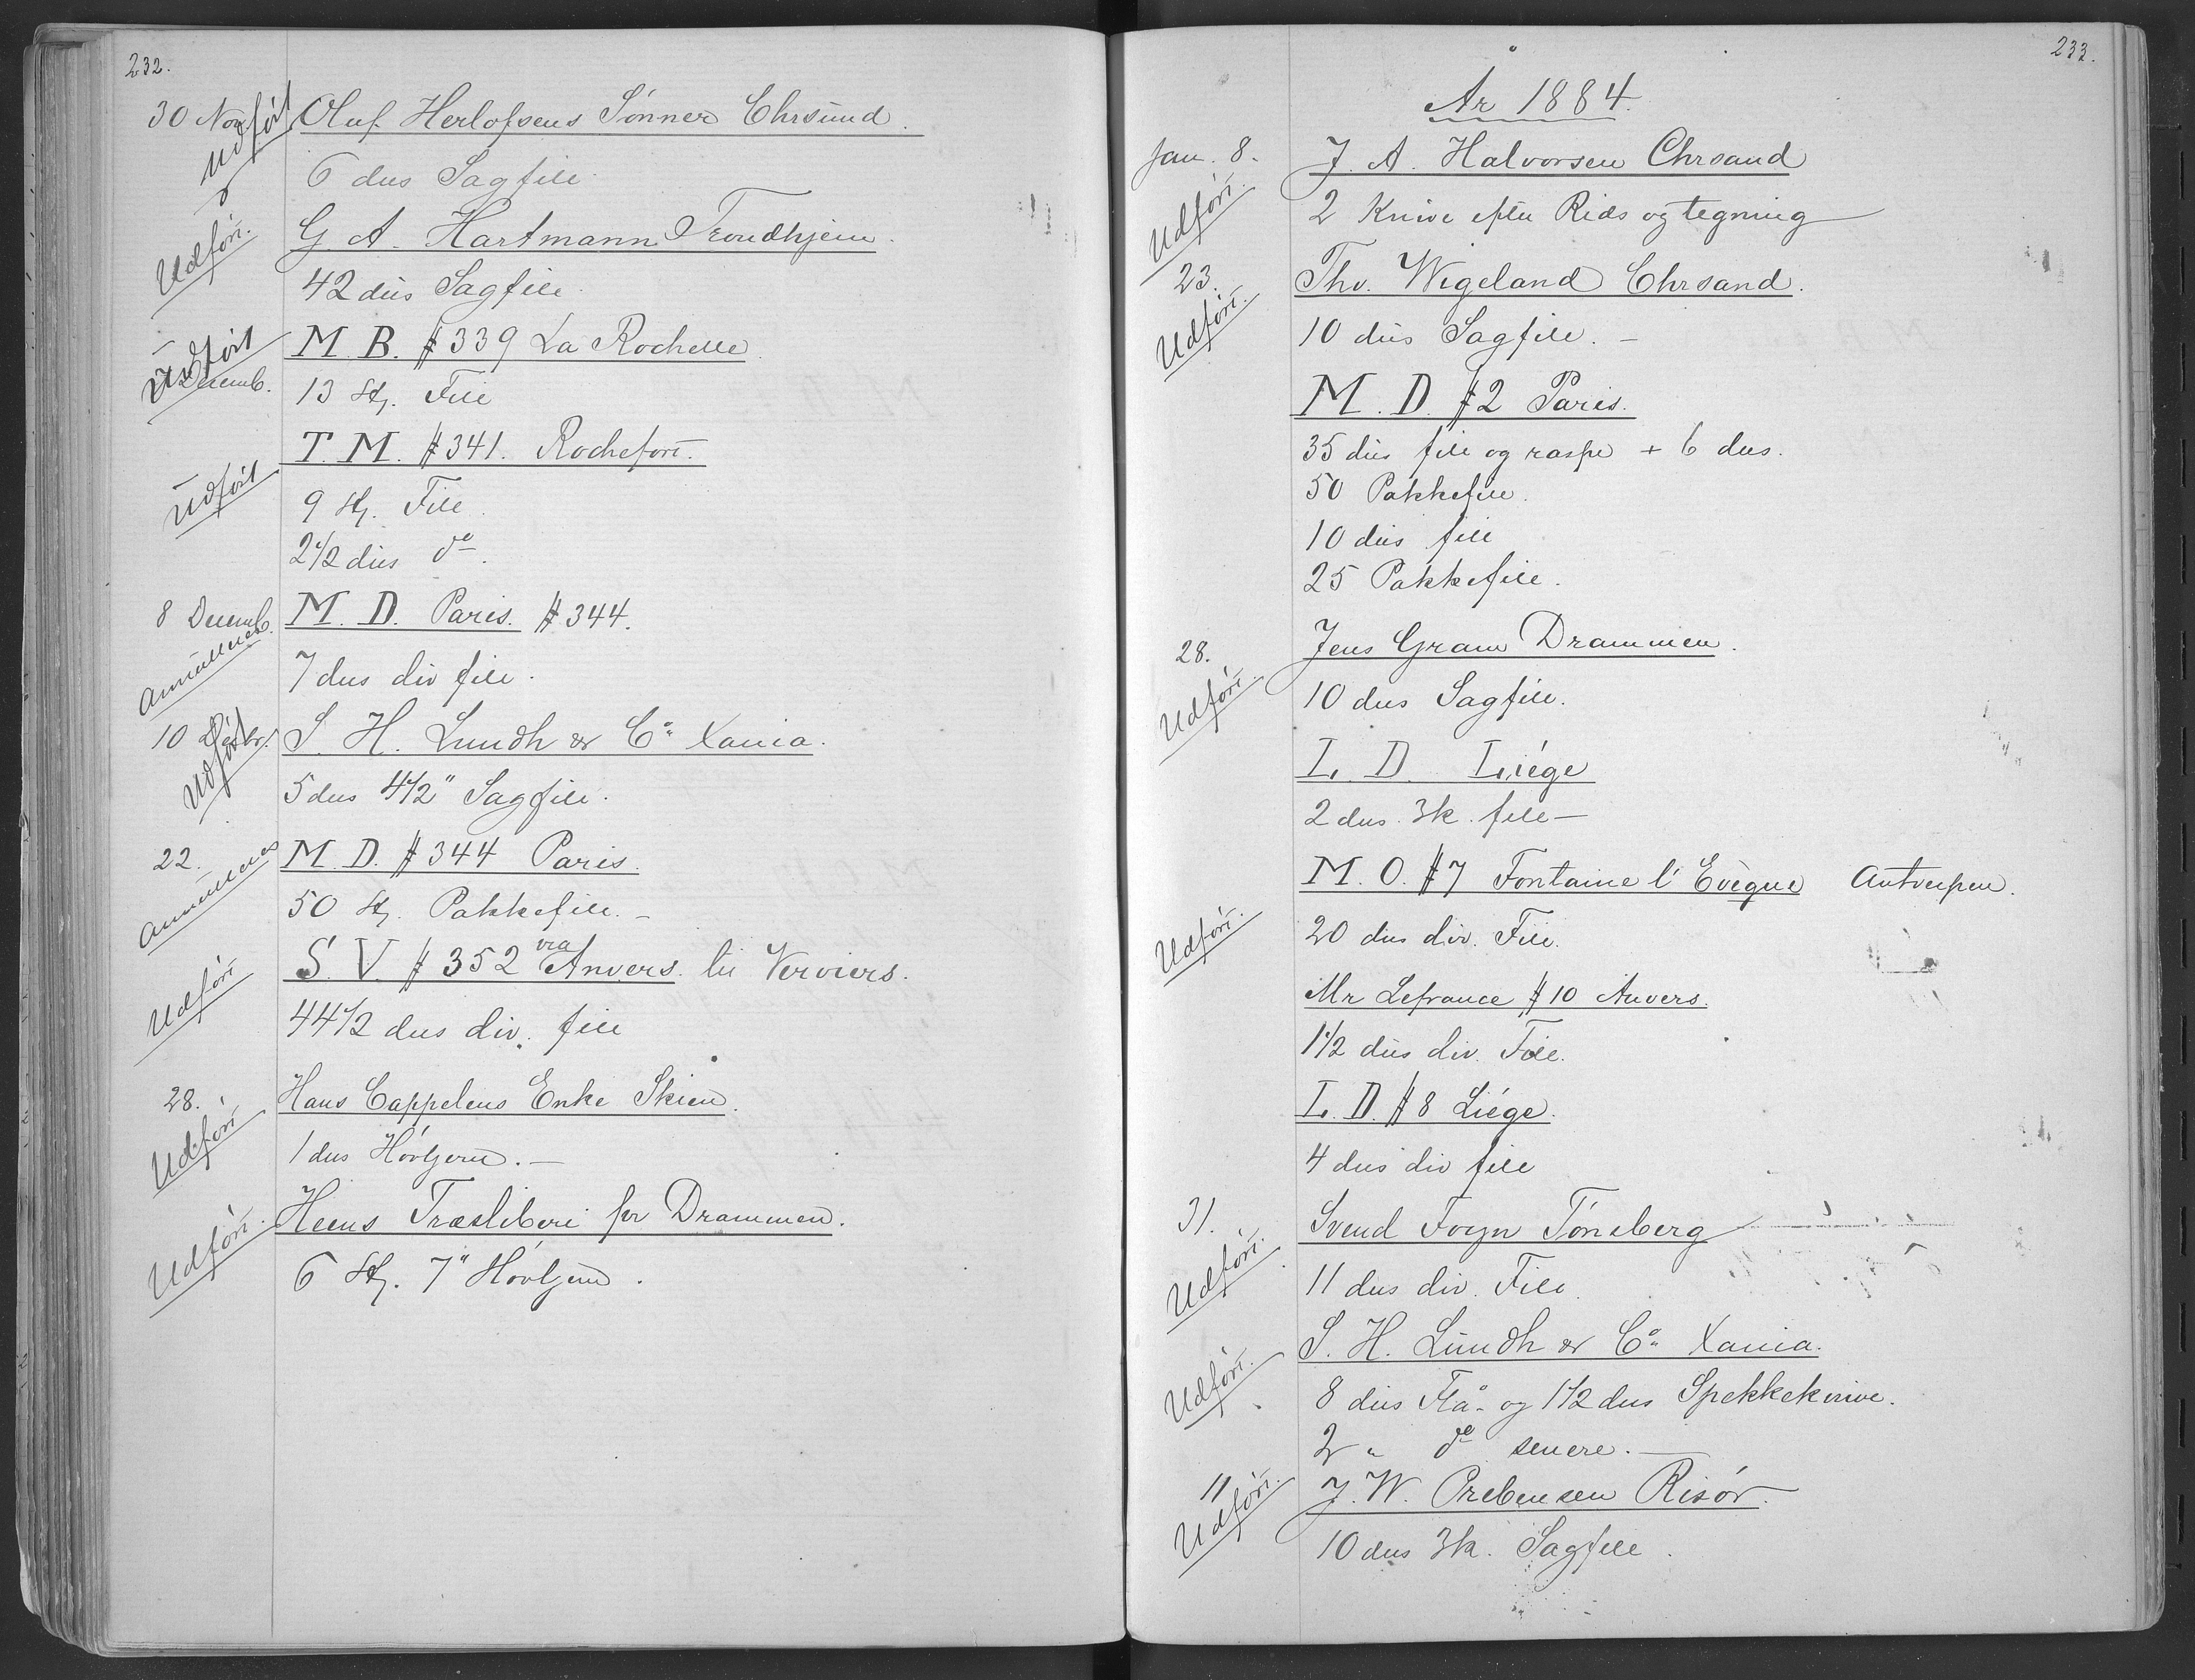 232.
30 Nov. Udført Oluf Herlofsens Sønner Chrsund.
6 dus Sagfile.
Udført. G A. Hartmann Trondhjem.
42 dus Sagfile.
Udført M. B. # 339 La Rochelle.
Decemb. 13 Stj. File
T. M. # 341. Rochefort.
Udført 9 Stj. File
2 1/2 dus do.
8 Decemb. M. D. Paris. # 344.
Annulleres 7 dus div file.
10 Decbr. S. H. Lundh & Co Xania.
Udført 5 dus 4 1/2" Sagfile.
22. M. D. # 344 Paris.
Annulleres 50 Stj. Pakkefile. –
S. V. # 352 via Anvers. til Verviers.
Udført 44 1/2 dus div. file
28. Hans Cappelens Enke Skien.
Udført 1 dus Høvljern. –
Heens Træsliberi pr Drammen.
Udført. 6 Stj. 7" Høvljern.
233.
År 1884.
Jan. 8. J. A. Halvorsen Chrsand
Udført. 2 Knive efter Rids og tegning
23. Thv. Wigeland Chrsand.
Udført. 10 dus Sagfile. –
M. D. # 2 Paris.
35 dus file og raspe + 6 dus.
50 Pakkefile.
10 dus file
25 Pakkefile.
28. Jens Gram Drammen.
Udført. 10 dus Sagfile.
L. D. Liége
2 dus. 3k. file –
M. O. # 7 Fontaine l' Evèque Antverpen.
Udført. 20 dus div. File.
Mr Lefrance # 10 Anvers.
1 1/2 dus div. File.
L. D. # 8 Liége.
4 dus div file
31. Svend Foyn Tönsberg
Udført. 11 dus div. File.
S. H. Lundh & Co Xania.
Udført. 8 dus Flå- og 1 1/2 dus Spekkeknive.
2 " do senere. –
11 J. W. Prebensen Risør.
Udført. 10 dus 3k. Sagfile.